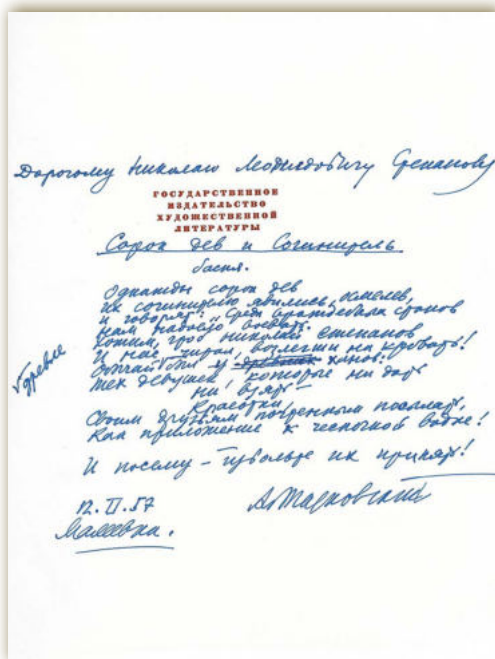 Дорогому Николаю Леонидовичу Степанову
ГОСУДАРСТВЕННОЕ
ИЗДАТЕЛЬСТВО
ХУДОЖЕСТВЕННОЙ
ЛИТЕРАТУРЫ
Сорок дев и Сочинитель
басня.
Однажды сорок дев
их сочинителю явились, осмелев,
и говорят: Средь враждебных станов
Нам надоело воевать.
Хотим, чтоб Николай Степанов
И нас читал, возлегши на кровать!
Обычай был у древних ханов:
древле
Тех девушек, которые ни дать
ни взять
Красотки,
Своим друзьям посылать,
Как приложение к чесночной водке!
И посему – извольте их принять!
12.II.57
Малеевка.
А. Тарковский